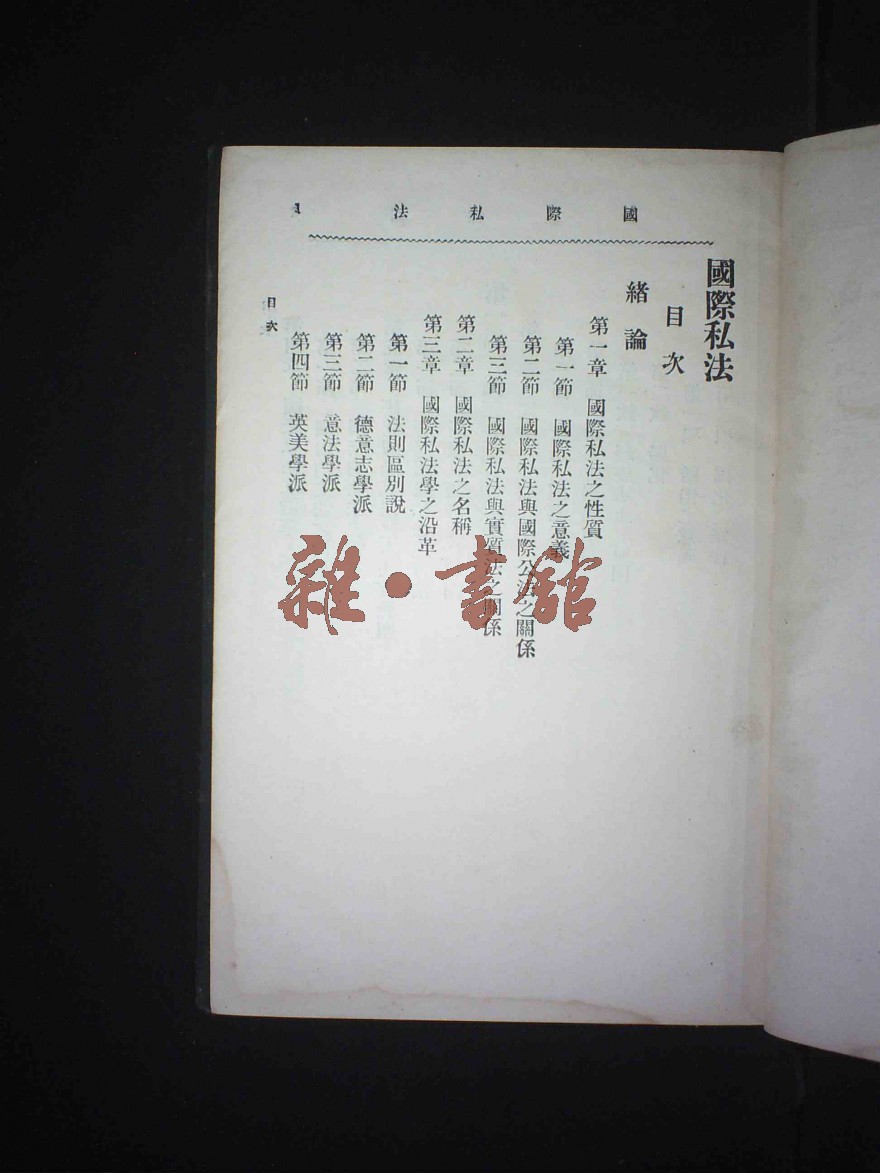 國際私法
國際私法
目次
緒論
第一章 國際私法之性質
第一節 國際私法之意義
第二節 國際私法與國際公法之關係
第三節 國際私法與實質法之關係
第二章 國際私法之名稱
第三章 國際私法學之沿革
第一節 法則區別說
第二節 德意志學派
第三節 意法學派
第四節 英美學派
目次
雜·書館